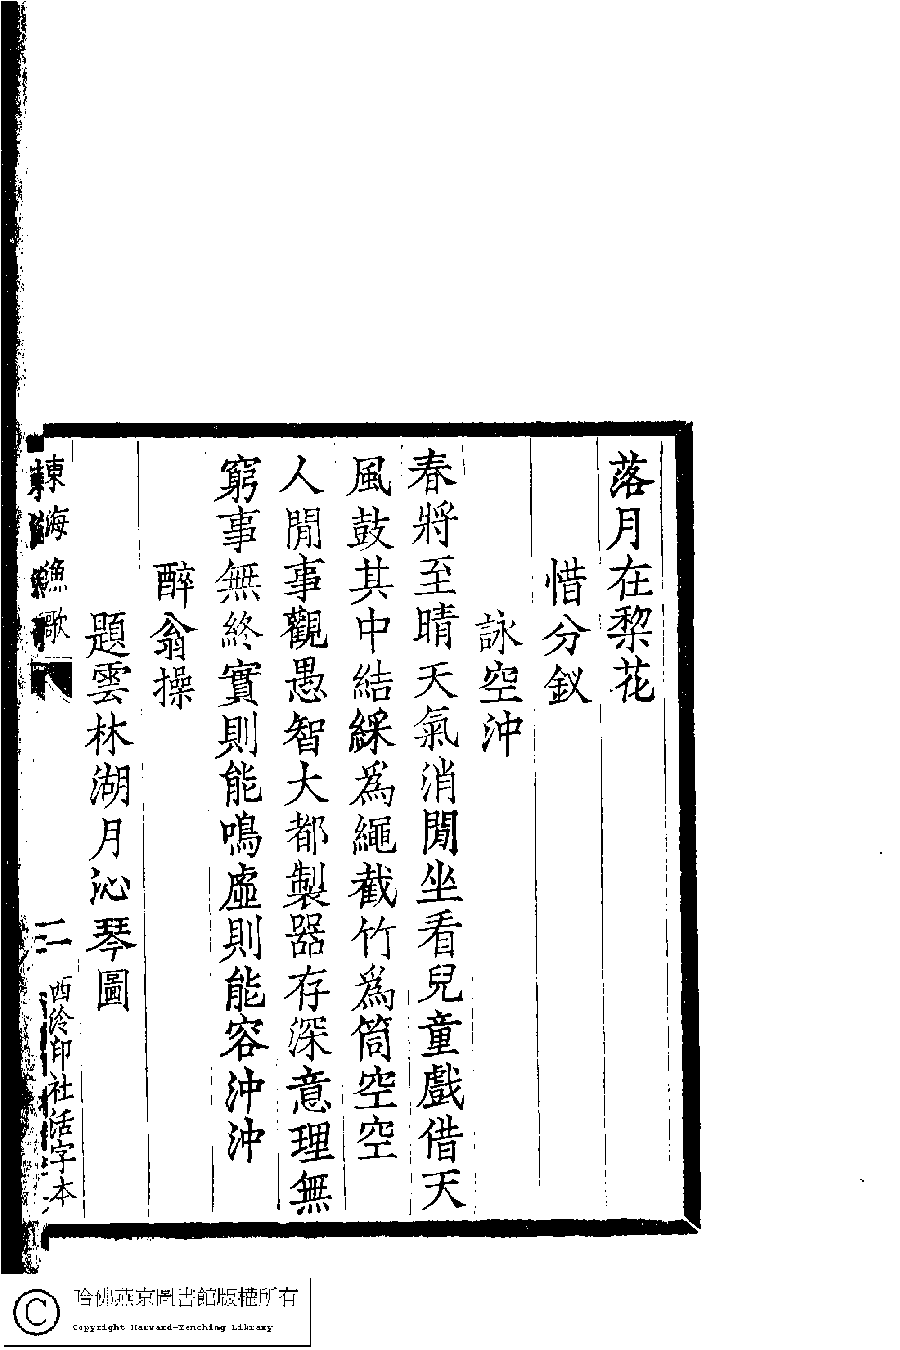 落月在棃花
惜分釵
詠空沖
春將至晴天氣消閒坐看兒童戲借天
風鼓其中結綵爲繩截竹爲筒空空
人閒事觀愚智大都製器存深意理無
窮事無終實則能鳴虛則能容沖沖
醉翁操
題雲林湖月沁琴圖
東海漁歌
二
西泠印社活字本
哈佛燕京圖書館版權所有
Copyright Harvard-Yenching Library